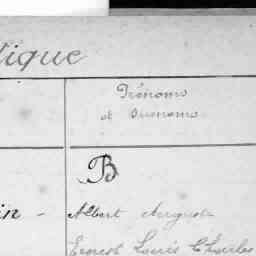 tique
Prénoms
et Surnoms
B
in - Albert Auguste
Ernest Louis Charles